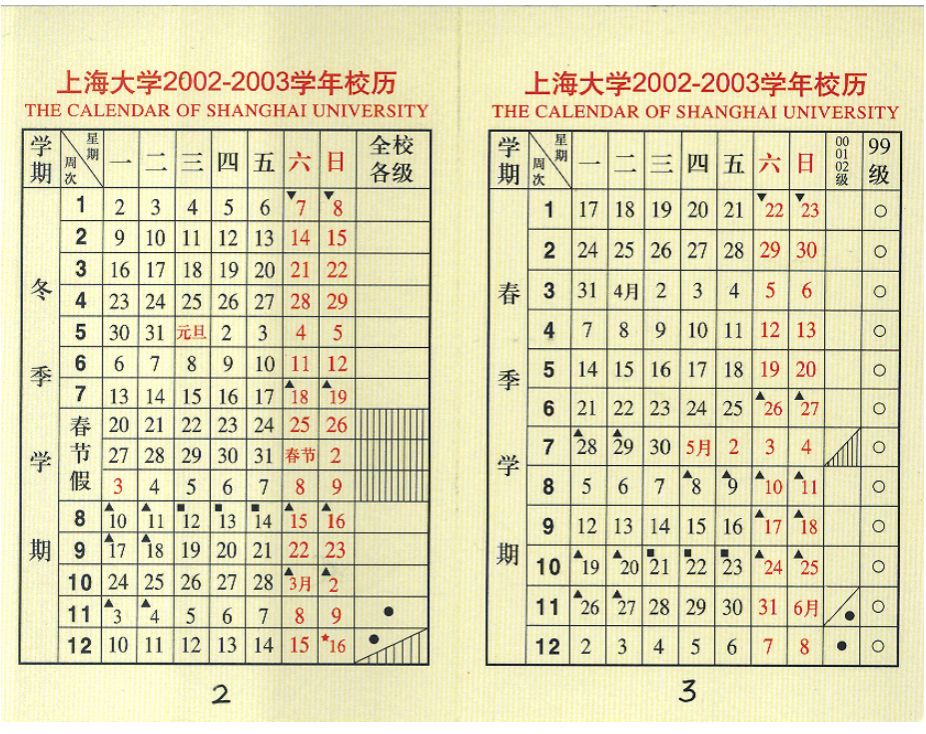 上海大学2002-2003学年校历
THE CALENDAR OF SHANGHAI UNIVERSITY
学期 星期 周次 一 二 三 四 五 六 日 全校各级
冬季学期
1 2 3 4 5 6 ▼7 ▼8
2 9 10 11 12 13 14 15
3 16 17 18 19 20 21 22
4 23 24 25 26 27 28 29
5 30 31 元旦 2 3 4 5
6 6 7 8 9 10 11 12
7 13 14 15 16 17 ▲18 ▲19
春节假 20 21 22 23 24 25 26
27 28 29 30 31 春节 2
3 4 5 6 7 8 9
8 ▲10 ▲11 ■12 ■13 ■14 ▲15 ▲16
9 ▲17 ▲18 19 20 21 22 23
10 24 25 26 27 28 ▲3月 ▲2
11 ▲3 ▲4 5 6 7 8 9 ●
12 10 11 12 13 14 15 ★16 ●
2
上海大学2002-2003学年校历
THE CALENDAR OF SHANGHAI UNIVERSITY
学期 星期 周次 一 二 三 四 五 六 日 00 01 02级 99级
春季学期
1 17 18 19 20 21 ▼22 ▼23 ○
2 24 25 26 27 28 29 30 ○
3 31 4月 2 3 4 5 6 ○
4 7 8 9 10 11 12 13 ○
5 14 15 16 17 18 19 20 ○
6 21 22 23 24 25 ▲26 ▲27 ○
7 ▲28 ▲29 30 5月 2 3 4 ○
8 5 6 7 ▲8 ▲9 ▲10 ▲11 ○
9 12 13 14 15 16 ▲17 ▲18 ○
10 ▲19 ▲20 ■21 ■22 ■23 ▲24 ▲25 ○
11 ▲26 ▲27 28 29 30 31 6月 ● ○
12 2 3 4 5 6 7 8 ● ○
3